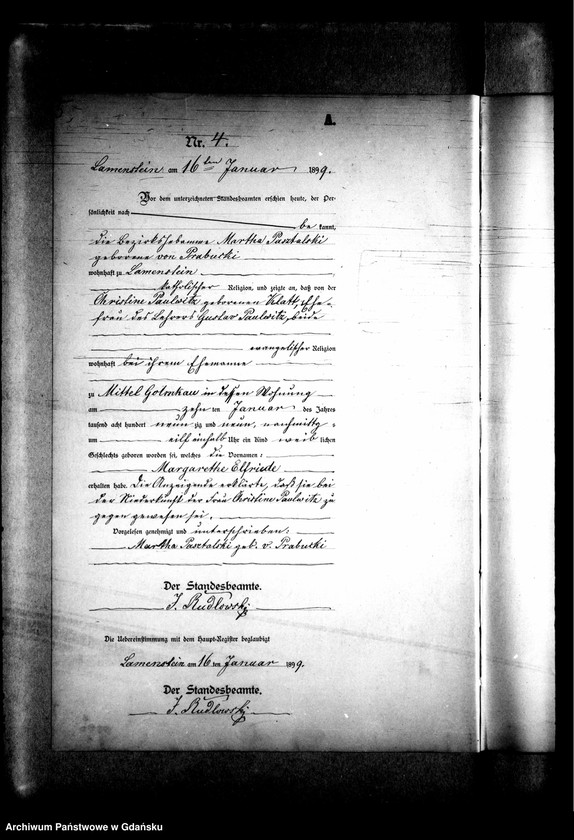 A.
Nr. 4.
Lamenstein am 16ten Januar 1899.
Vor dem unterzeichneten Standesbeamten erschien heute, der Per-
sönlichkeit nach
be kannt,
die Bezirkshebamme Martha Pasztalski
geborene von Prabucki
wohnhaft zu Lamenstein
katholischer Religion, und zeigte an, daß von der
Christine Paulwitz geborenen Klatt, Ehe-
frau des Lehrers Gustav Paulwitz, beide
evangelischer Religion
wohnhaft bei ihrem Ehemanne
zu Mittel Golmkau in dessen Wohnung
am zehn ten Januar des Jahres
tausend acht hundert neun zig und neun, nachmittags
um eilf einhalb Uhr ein Kind weib lichen
Geschlechts geboren worden sei, welches die Vornamen:
Margarethe Elfriede
erhalten habe. Die Anzeigende erklärte, daß sie bei
der Niederkunft der Frau Christine Paulwitz zu
gegen gewesen sei.
Vorgelesen genehmigt und unterschrieben:
Martha Pasztalski geb. v. Prabucki
Der Standesbeamte.
J. Rudlowski
Die Uebereinstimmung mit dem Haupt-Register beglaubigt
Lamenstein am 16 ten Januar 1899.
Der Standesbeamte.
J. Rudlowski
Archiwum Państwowe w Gdańsku